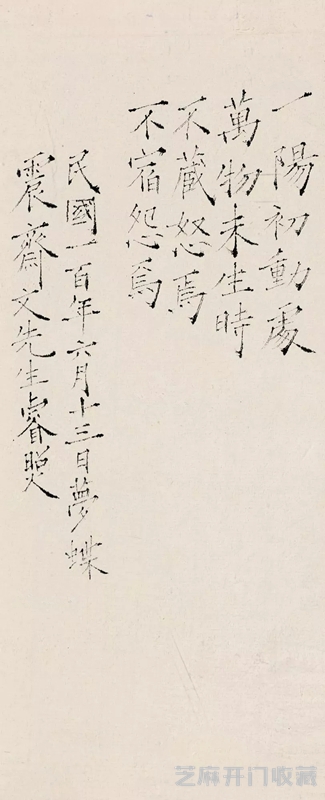 一陽初動處
萬物未生時
不藏怒焉
不宿怨焉
民國一百年六月十三日夢蝶
震齋文先生睿照
芝麻开门收藏